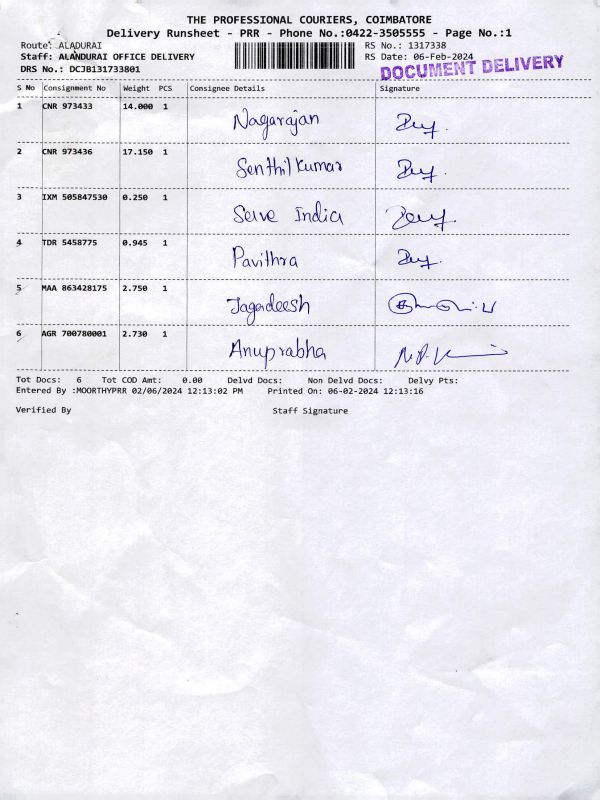 THE PROFESSIONAL COURIERS, COIMBATORE
Delivery Runsheet - PRR - Phone No.:0422-3505555 - Page No.:1
Route: ALADURAI RS No.: 1317338
Staff: ALANDURAI OFFICE DELIVERY RS Date: 06-Feb-2024
DRS No.: DCJB131733801 DOCUMENT DELIVERY
S No Consignment No Weight PCS Consignee Details Signature
1 CNR 973433 14.000 1 Nagarajan
2 CNR 973436 17.150 1 Senthil Kumar
3 IXM 505847530 0.250 1 Serve India
4 TDR 5458775 0.945 1 Pavithra
5 MAA 863428175 2.750 1 Jagadeesh
6 AGR 700780001 2.730 1 Anuprabha
Tot Docs: 6 Tot COD Amt: 0.00 Delvd Docs: Non Delvd Docs: Delvy Pts:
Entered By :MOORTHYPRR 02/06/2024 12:13:02 PM Printed On: 06-02-2024 12:13:16
Verified By Staff Signature